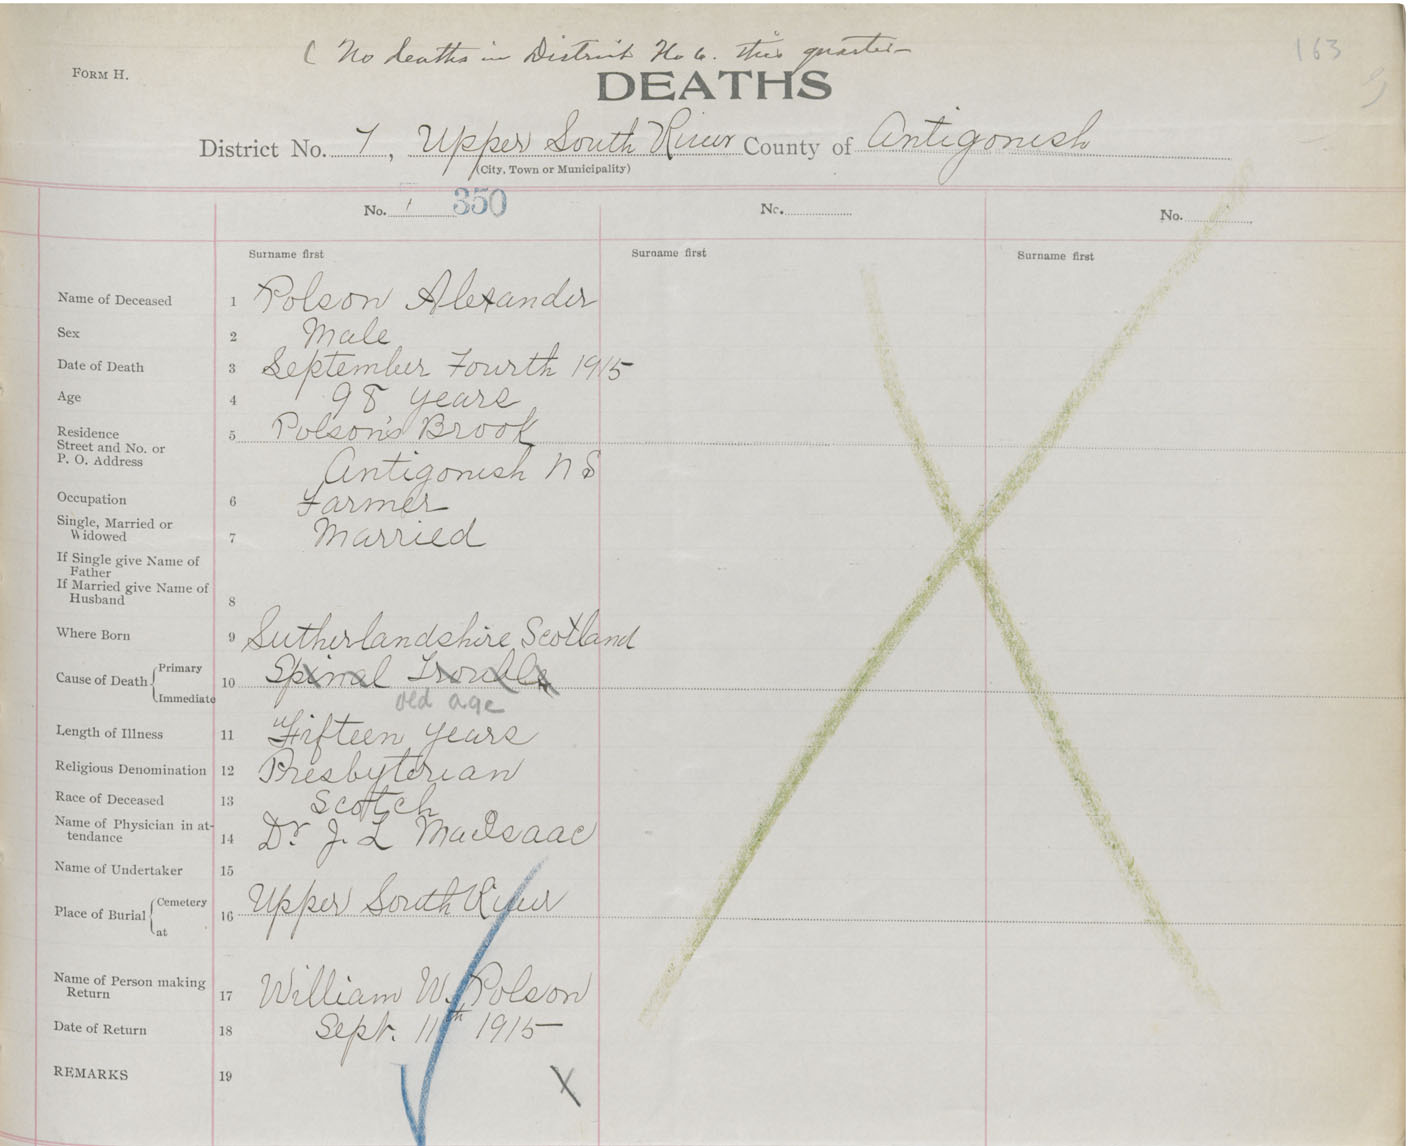 ( No deaths in District No 6. this quarter
163
FORM H.
DEATHS
District No. 7, Upper South River County of Antigonish
(City, Town or Municipality)
No. 1 350
No.
No.
Surname first
Surname first
Surname first
Name of Deceased 1 Polson Alexander
Sex 2 Male
Date of Death 3 September Fourth 1915
Age 4 98 years
Residence
Street and No. or
P. O. Address
5 Polson's Brook
Antigonish N S
Occupation 6 Farmer
Single, Married or
Widowed 7 Married
If Single give Name of
Father
If Married give Name of
Husband 8
Where Born 9 Sutherlandshire Scotland
Cause of Death { Primary
Immediate
10 Spinal Trouble
old age
Length of Illness 11 Fifteen years
Religious Denomination 12 Presbyterian
Race of Deceased 13 Scotch
Name of Physician in at-
tendance 14 Dr J. L MacIsaac
Name of Undertaker 15
Place of Burial { Cemetery
at
16 Upper South River
Name of Person making
Return 17 William W. Polson
Date of Return 18 Sept. 11th 1915
REMARKS 19
X